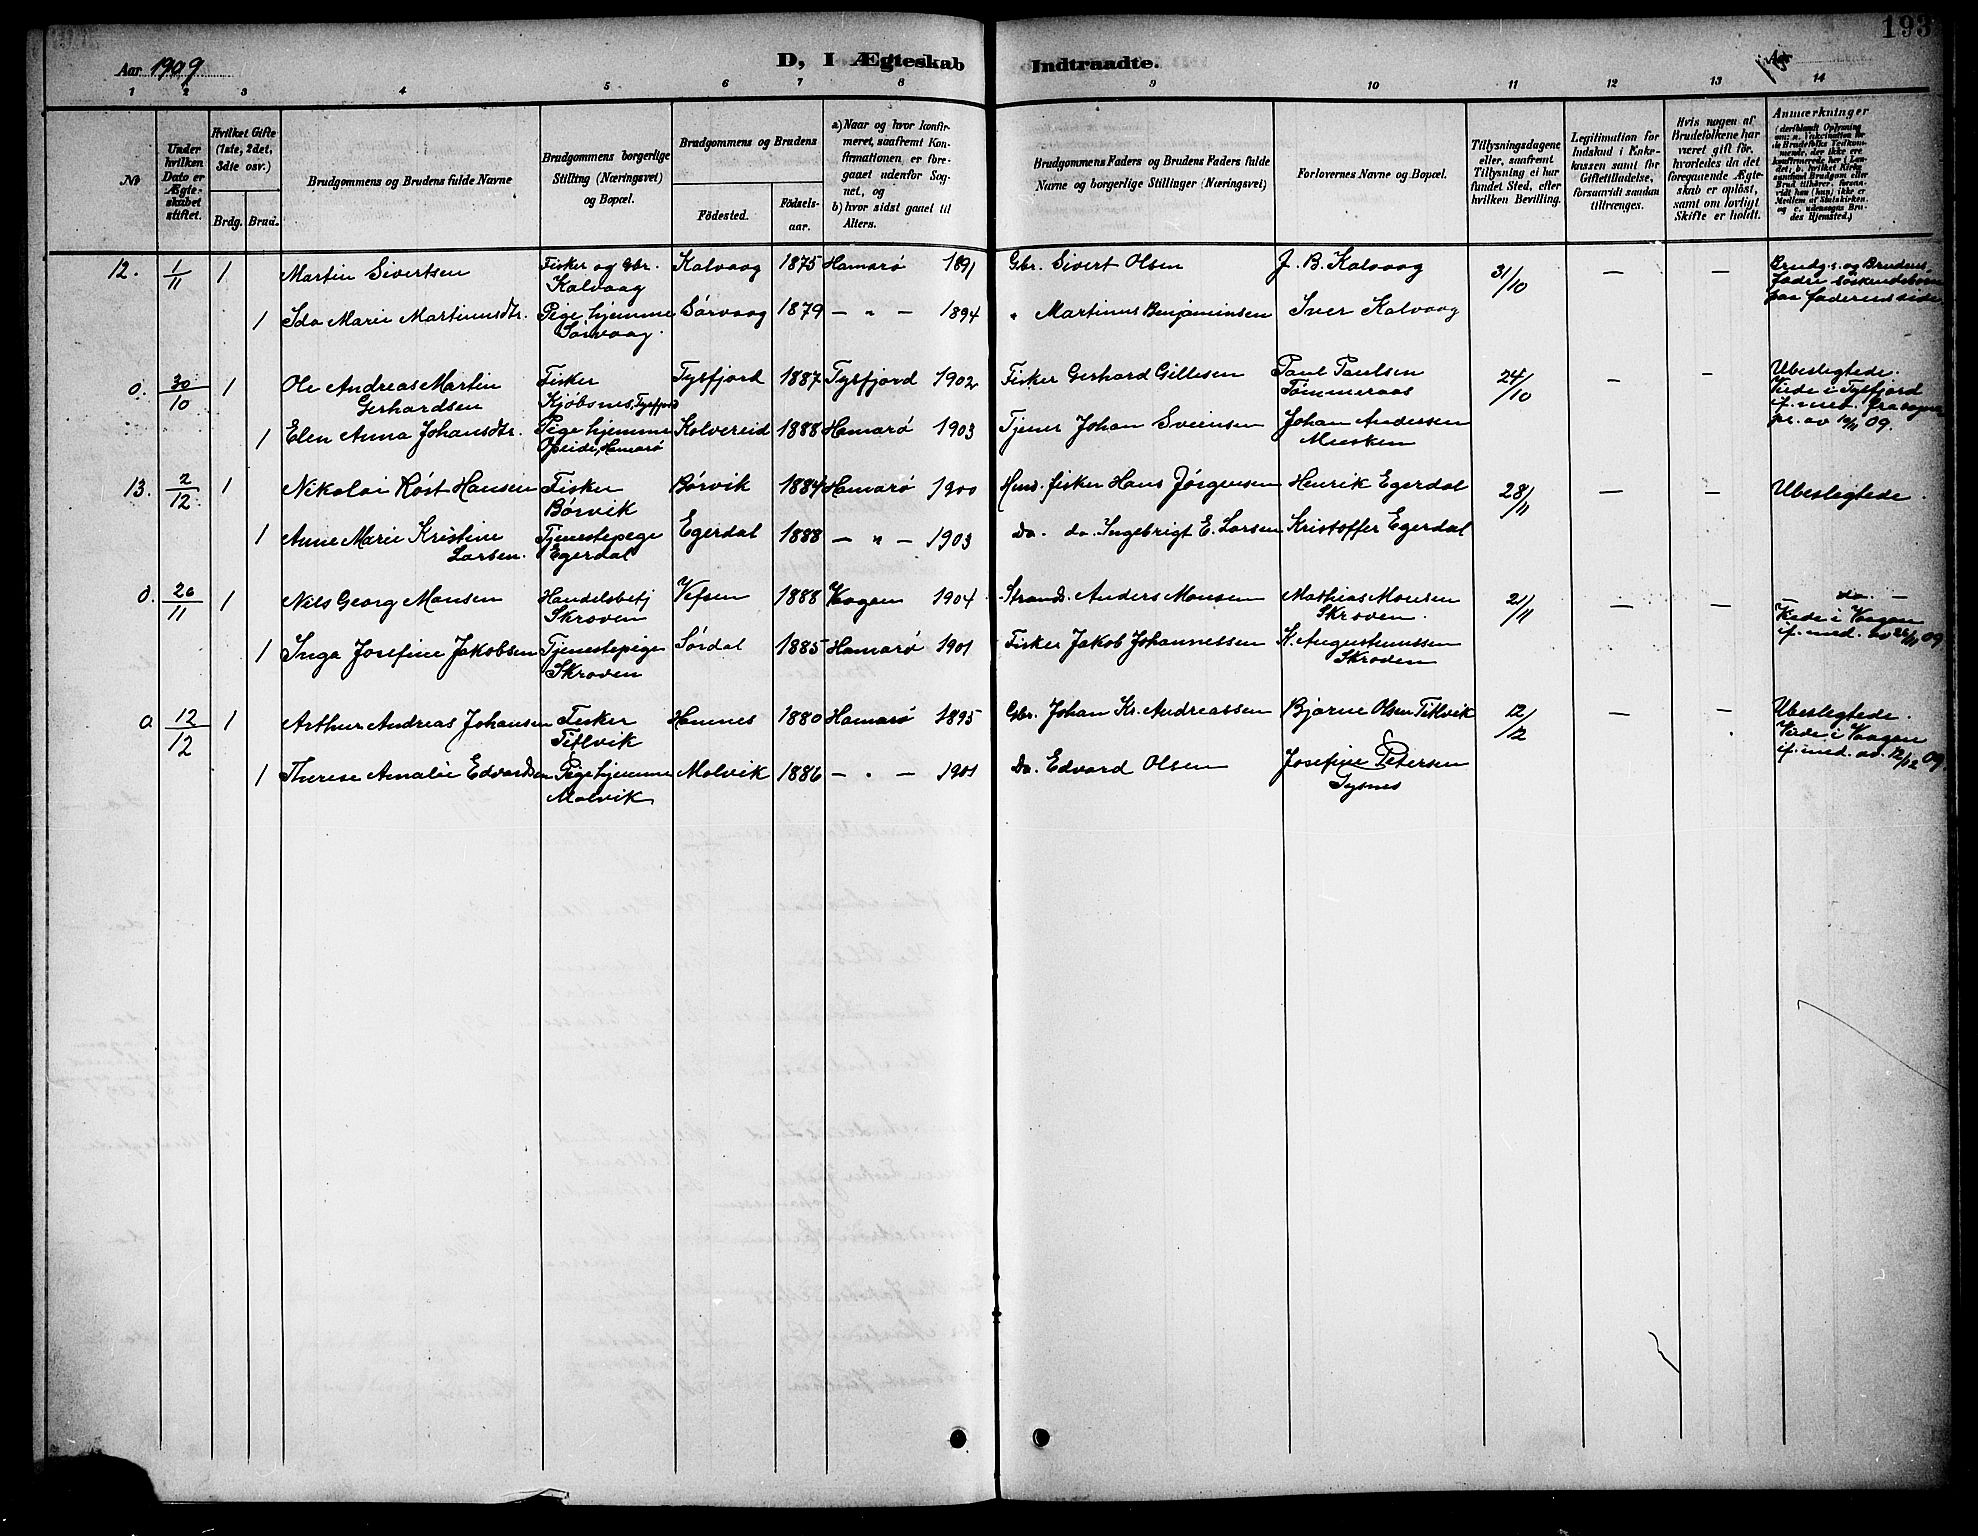 193
Aar 1909
D, I Ægteskab Indtraadte.
1 2 3 4 5 6 7 8 9 10 11 12 13 14
No
Under hvilken Dato er Ægteskabet stiftet.
Hvilket Gifte (1ste, 2det, 3die osv.)
Brdg. Brud.
Brudgommens og Brudens fulde Navne
Brudgommens borgerlige Stilling (Næringsvei) og Bopæl.
Brudgommens og Brudens
Födested. Födselsaar.
a) Naar og hvor konfirmeret, saafremt Konfirmationen er foregaaet udenfor Sognet, og
b) hvor sidst gaaet til Alters.
Brudgommens Faders og Brudens Faders fulde Navne og borgerlige Stillinger (Næringsvei)
Forlovernes Navne og Bopæl.
Tillysningsdagene eller, saafremt Tillysning ei har fundet Sted, efter hvilken Bevilling.
Legitimation for Indskud i Enkekassen samt for Giftetilladelse, forsaavidt saadan tiltrænges.
Hvis nogen af Brudefolkene har været gift för, hvorledes da det foregaaende Ægteskab er oplöst, samt om lovligt Skifte er holdt.
Anmærkninger
12. 1/11 1 Martin Sivertsen Fisker og Gbr. Kalvaag Kalvaag 1875 Hamarø 1891 Gbr. Sivert Olsen J. B. Kalvaag 31/10 — — Brudg.s og Brudens fædre söskendebørn paa faderens side
1 Ida Marie Martinusdtr. Pige hjemme Sørvaag. Sørvaag 1879 — " — 1894 " Martinus Benjaminsen Iver Kalvaag
0. 30/10 1 Ole Andreas Martin Gerhardsen Fisker Kjøbsnes, Tysfjord Tysfjord 1887 Tysfjord 1902 Fisker Gerhard Gillesen Paul Paulsen Tømmeraas 24/10 — — Ubeslegtede. Viede i Tysfjord if. med. fra sognepr. av 10/11 09.
1 Elen Anna Johansdtr. Pige hjemme Opeide, Hamarø Kalvereid 1888 Hamarø 1903 Tjener Johan Sveinsen Johan Andersen Musken
13. 2/12 1 Nikolai Røst Hansen Fisker Børvik Børvik 1884 Hamarø 1900 Hmd. fisker Hans Jørgensen Henrik Egerdal 28/11 — — Ubeslegtede.
1 Anne Marie Kristine Larsen. Tjenestepige Egerdal Egerdal 1888 — " — 1903 Do. do. Ingebrigt E. Larsen Kristoffer Egerdal
0. 26/11 1 Nils Georg Monsen Handelsbetj Skroven Vefsen 1888 Vagen 1904 Strands. Anders Monsen Mathias Monsen Skroven. 21/11 — — do. — Viede i Vaagan if. med. av 22/11 09
1 Inga Josefine Jakobsen Tjenestepige Skroven Sørdal 1885 Hamarø 1901 Fisker Jakob Johannessen K. Augustinussen Skroven
0 12/12 1 Arthur Andreas Johansen Fisker Tiltvik Hamnes 1880 Hamarø 1895 Gbr. Johan Kr. Andreassen Bjarne Olsen Tiltvik 12/12 — — Ubeslegtede. Viede i Vaagan if. med. av. 12/12 09.
1 Therese Amalie Edvardsen Pige hjemme Malvik Malvik 1886 — " — 1901 Do. Edvard Olsen Josefine Petersen Tysnes